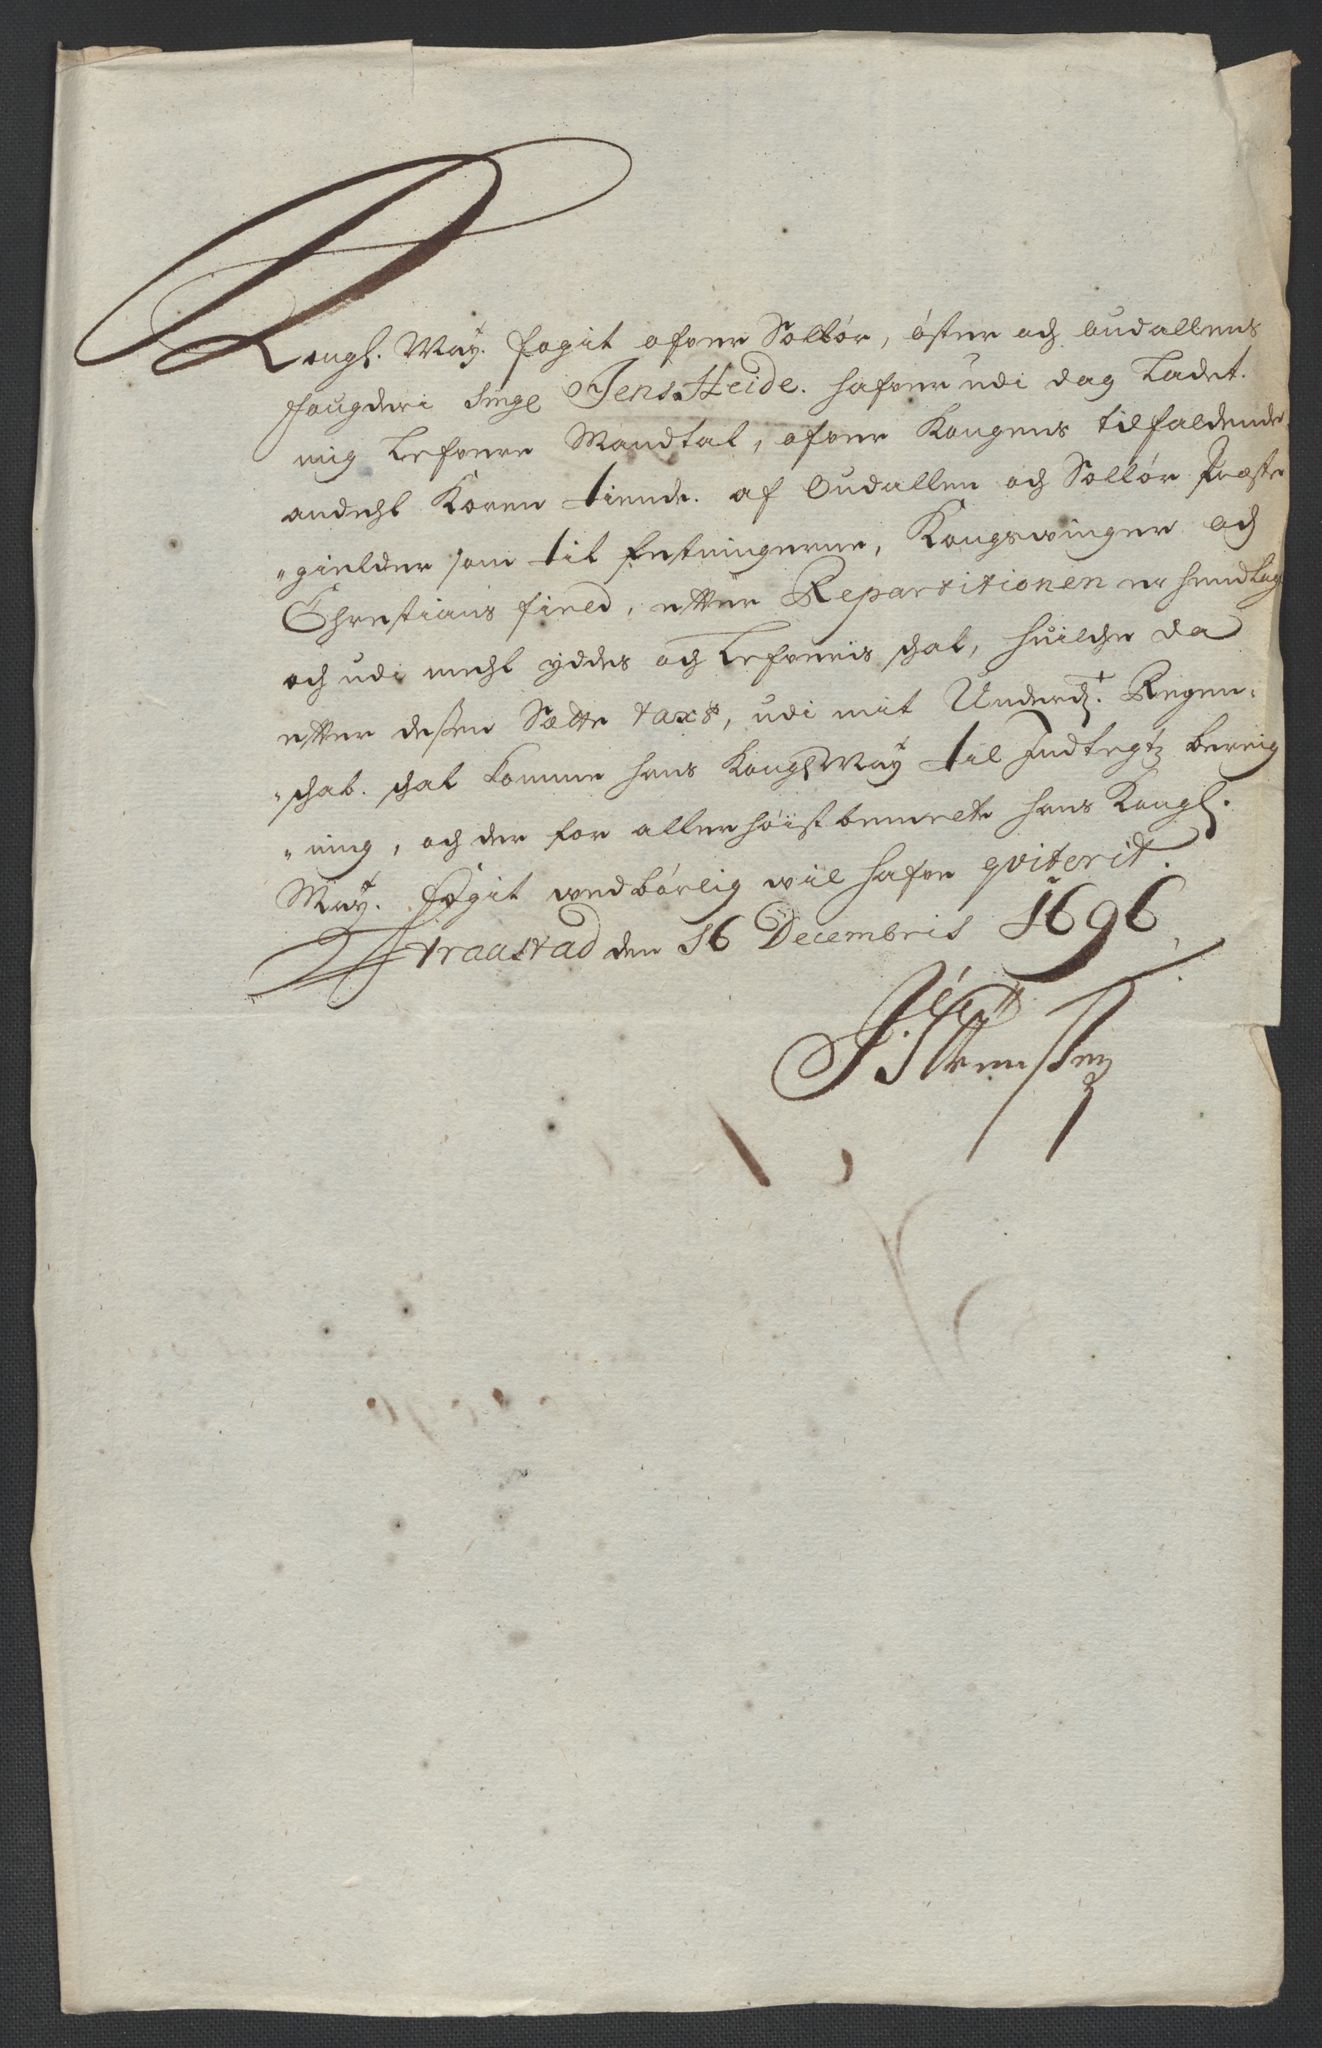 Kongl. May.t fogit ofver Sollør, øster och Oudallens
fougderi Singr Jens Heide. hafver udi dag Ladet.
mig Lefvere Mandtal, ofver Kongens tilfaldende
andehl Koren tiende. af Oudallen och Sollør Præste
"gielder som til festningerne, Kongswinger och
Christians field, efter Repartitionen er henlagt
och udi mehl yddes och Lefveris schal, huilche da
efter dessen Satte taxt, udi mit Underd.t Regen"
"schab. schal komme hans Kongl May.t til Indtegtz bereig
"ning, och der for aller høist bemelte hans Kongl.
May.t fogit wedbørlig wil hafve qviterit.
Straastad den 16 Decembris 1696